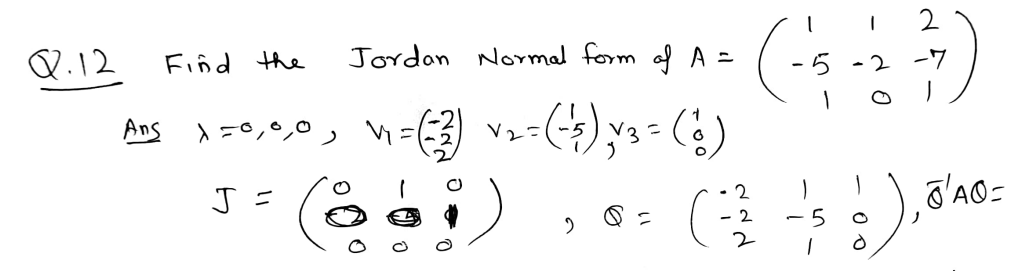 Q.12 Find the Jordan Normal form of A = ( 1 1 2
-5 -2 -7
1 0 1 )
Ans λ = 0,0,0, V1 = (-2 -2 2) V2 = (1 -5 1), V3 = (1 0 0)
J = ( 0 1 0
0 0 1
0 0 0 ) , Q = ( -2 1 1
-2 -5 0
2 1 0 ), Q⁻¹AQ =